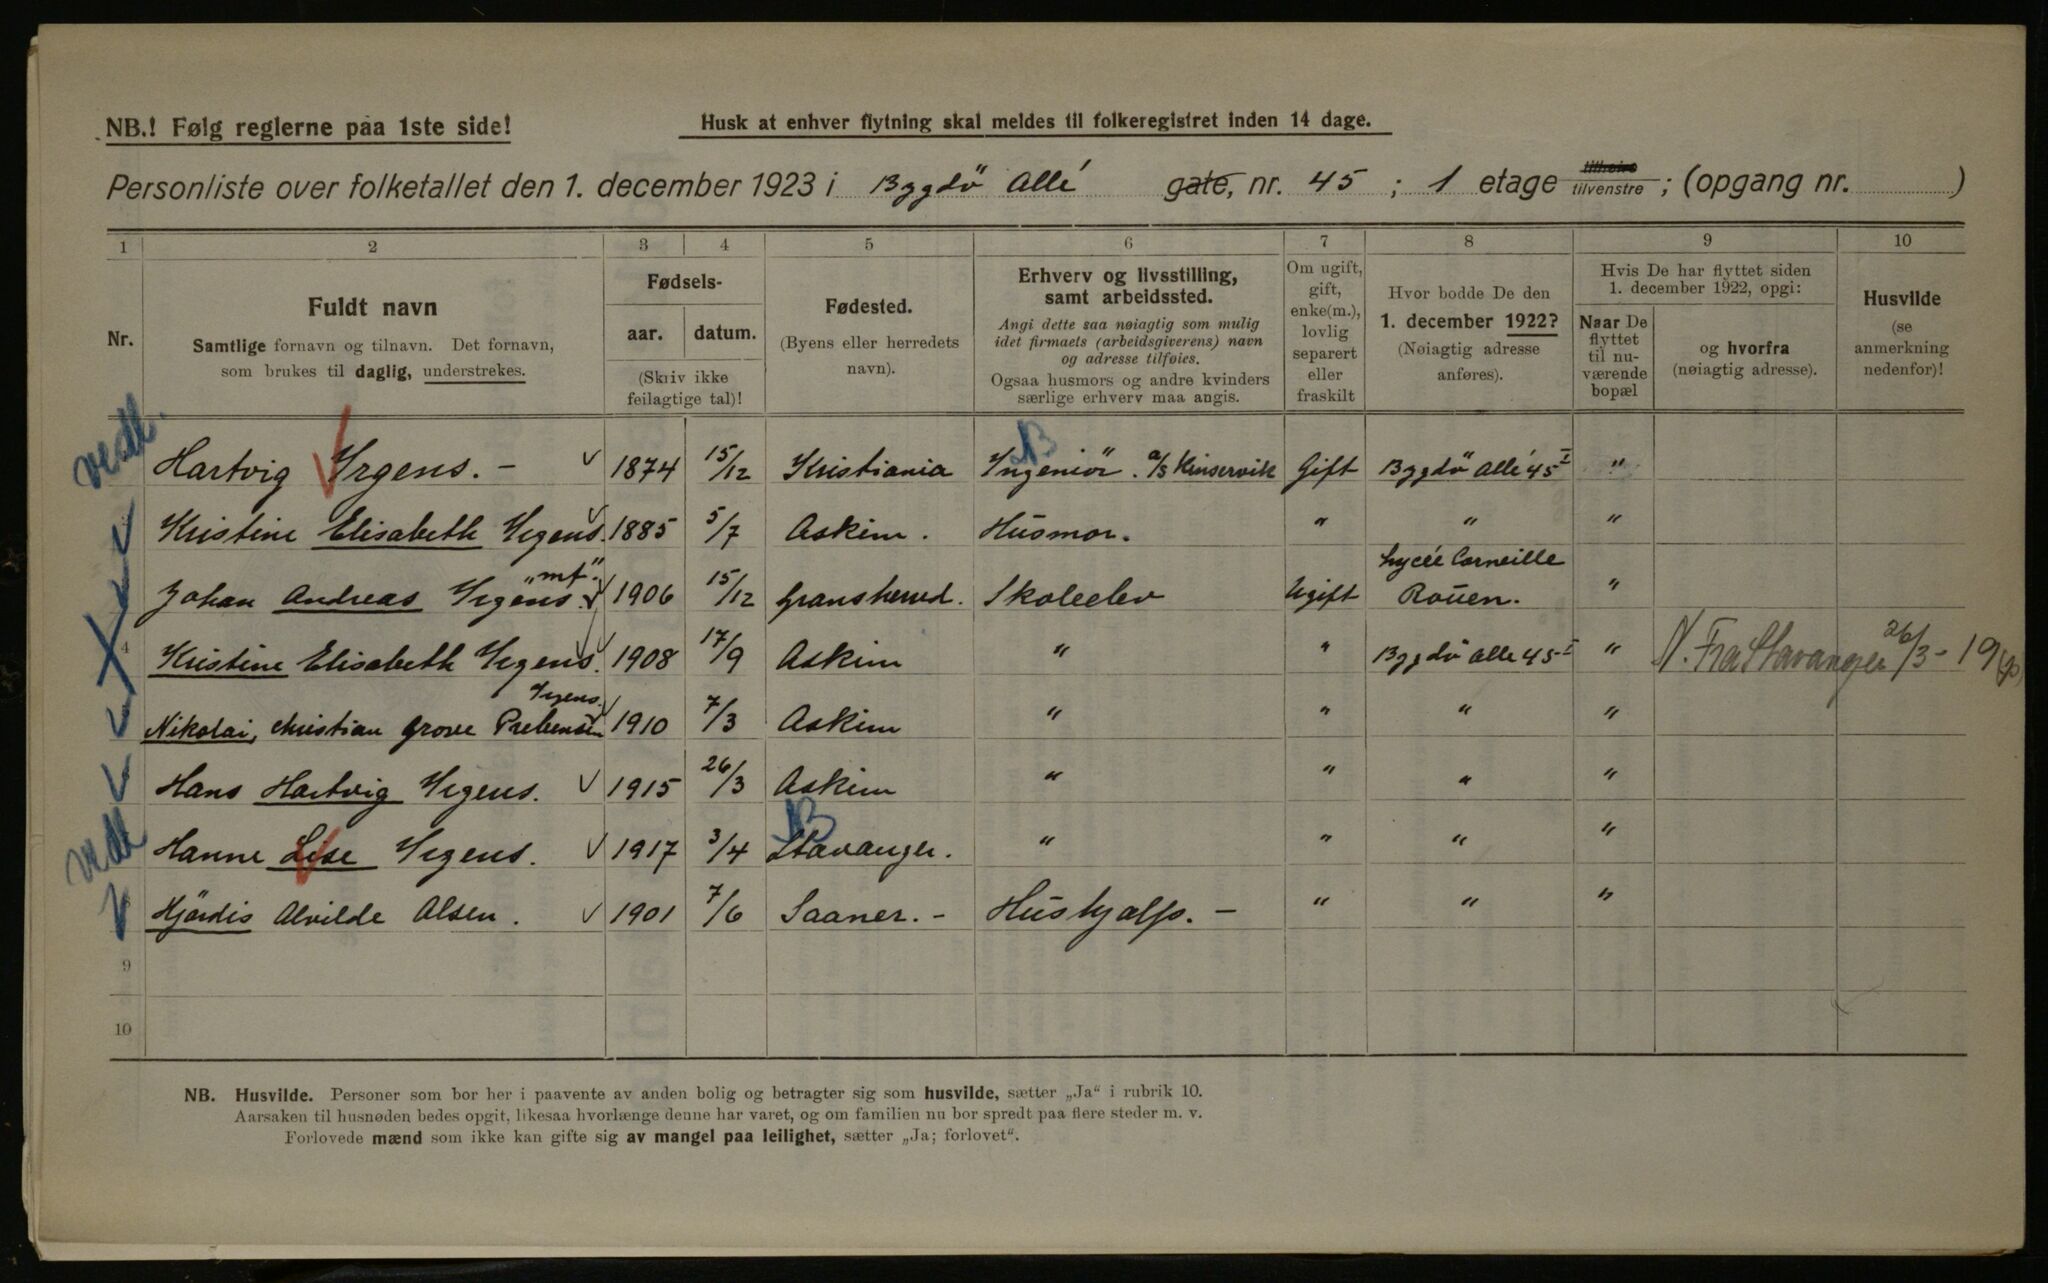 NB.! Følg reglerne paa 1ste side!
Husk at enhver flytning skal meldes til folkeregistret inden 14 dage.
Personliste over folketallet den 1. december 1923 i Bygdö Allé gate, nr. 45 ; 1 etage tilhøire tilvenstre ; (opgang nr. )
1 2 3 4 5 6 7 8 9 10
Nr.
Fuldt navn
Samtlige fornavn og tilnavn. Det fornavn,
som brukes til daglig, understrekes.
Fødsels-
aar. datum.
(Skriv ikke
feilagtige tal)!
Fødested.
(Byens eller herredets
navn).
Erhverv og livsstilling,
samt arbeidssted.
Angi dette saa nøiagtig som mulig
idet firmaets (arbeidsgiverens) navn
og adresse tilføies.
Ogsaa husmors og andre kvinders
særlige erhverv maa angis.
Om ugift,
gift,
enke(m.),
lovlig
separert
eller
fraskilt
Hvor bodde De den
1. december 1922?
(Nøiagtig adresse
anføres).
Hvis De har flyttet siden
1. december 1922, opgi:
Naar De
flyttet
til nu-
værende
bopæl
og hvorfra
(nøiagtig adresse).
Husvilde
(se
anmerkning
nedenfor)!
vedl.
Hartvig Irgens. - 1874 15/12 Kristiania Ingeniör. a/s Kinservik Gift Bygdö Allé 45 I "
Kristine Elisabeth Irgens. 1885 5/7 Askim. Husmor. " " "
Johan Andreas Irgens. "mf". 1906 15/12 Gransherred. Skoleelev Ugift Lycée Corneille Rouen. "
4 Kristine Elisabeth Irgens. 1908 17/9 Askim " " Bygdö Allé 45 I " N. Fra Stavanger 26/3-19
Nikolai, Christian Grove Prebensen Irgens. 1910 7/3 Askim " " " "
Hans Hartvig Irgens. 1915 26/3 Askim " " " "
vedl
Hanne Lise Irgens. 1917 3/4 Stavanger. " " " "
Hjördis Alvilde Olsen. 1901 7/6 Saaner. - Hushjælp. - " " "
9
10
NB. Husvilde. Personer som bor her i paavente av anden bolig og betragter sig som husvilde, sætter „Ja“ i rubrik 10.
Aarsaken til husnøden bedes opgit, likesaa hvorlænge denne har varet, og om familien nu bor spredt paa flere steder m. v.
Forlovede mænd som ikke kan gifte sig av mangel paa leilighet, sætter „Ja; forlovet“.